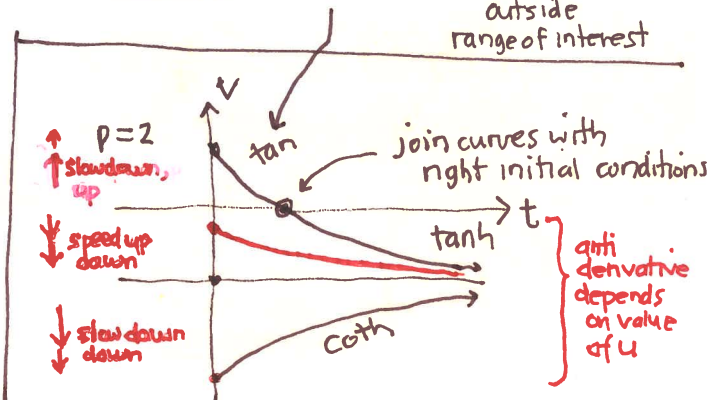 outside
range of interest
v
p=2
tan
join curves with
right initial conditions
slowdown,
up
t
tanh
speed up
down
anti
derivative
depends
on value
of u
slow down
down
coth